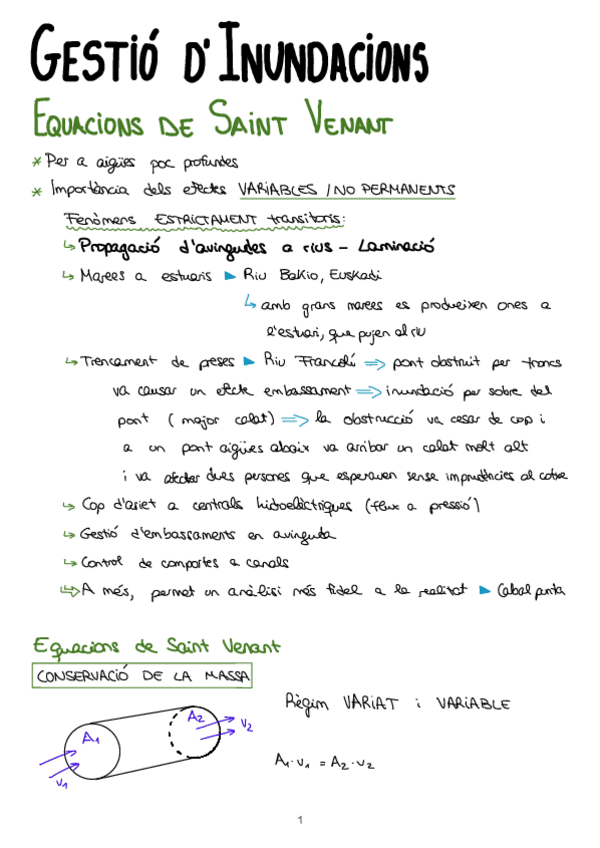 GESTIÓ D'INUNDACIONS
EQUACIONS DE SAINT VENANT
* Per a aigües poc profundes
* Importància dels efectes VARIABLES / NO PERMANENTS
Fenòmens ESTRICTAMENT transitoris:
↳ Propagació d'avingudes a rius - Laminació
↳ Marees a estuaris ▶ Riu Bakio, Euskadi
↳ amb grans marees es produeixen ones a
l'estuari, que pujen al riu
↳ Trencament de preses ▶ Riu Francolí ⇒ pont obstruit per troncs
va causar un efecte embassament ⇒ inundació per sobre del
pont (major calat) ⇒ la obstrucció va cesar de cop i
a un pont aigües abaix va arribar un calat molt alt
i va afectar dues persones que esperaven sense imprudències al cotxe
↳ Cop d'ariet a centrals hidroelèctriques (flux a pressió)
↳ Gestió d'embassaments en avinguda
↳ Control de comportes a canals
↳ A més, permet un anàlisi més fidel a la realitat ▶ Cabal punta
Equacions de Saint Venant
CONSERVACIÓ DE LA MASSA
Règim VARIAT i VARIABLE
A₁ A₂ v₂
v₁
A₁·v₁ = A₂·v₂
1